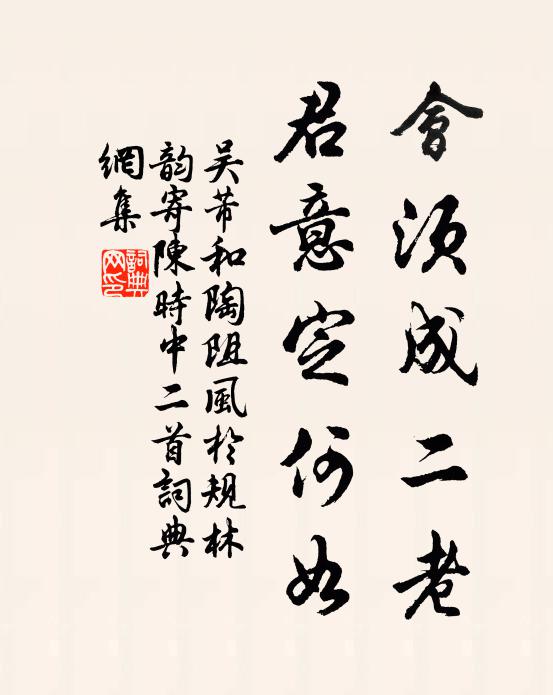 會須成二老
君意定何如
吴芾和陶阻風於規林
韵寄陳時中二首詞典
網集
詞典
网印